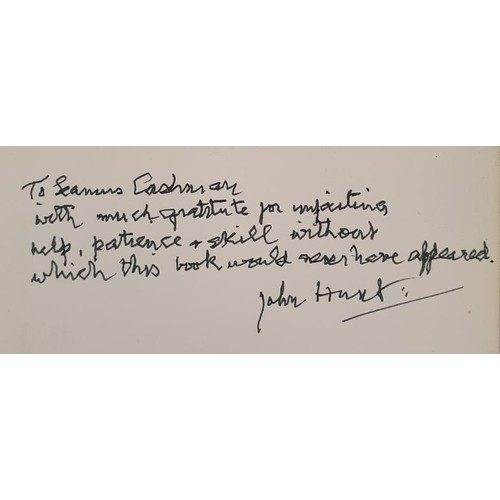 To Seamus Cashman
with much gratitute for
help, patience + skill without
which this book would never have appeared.
John Hunt